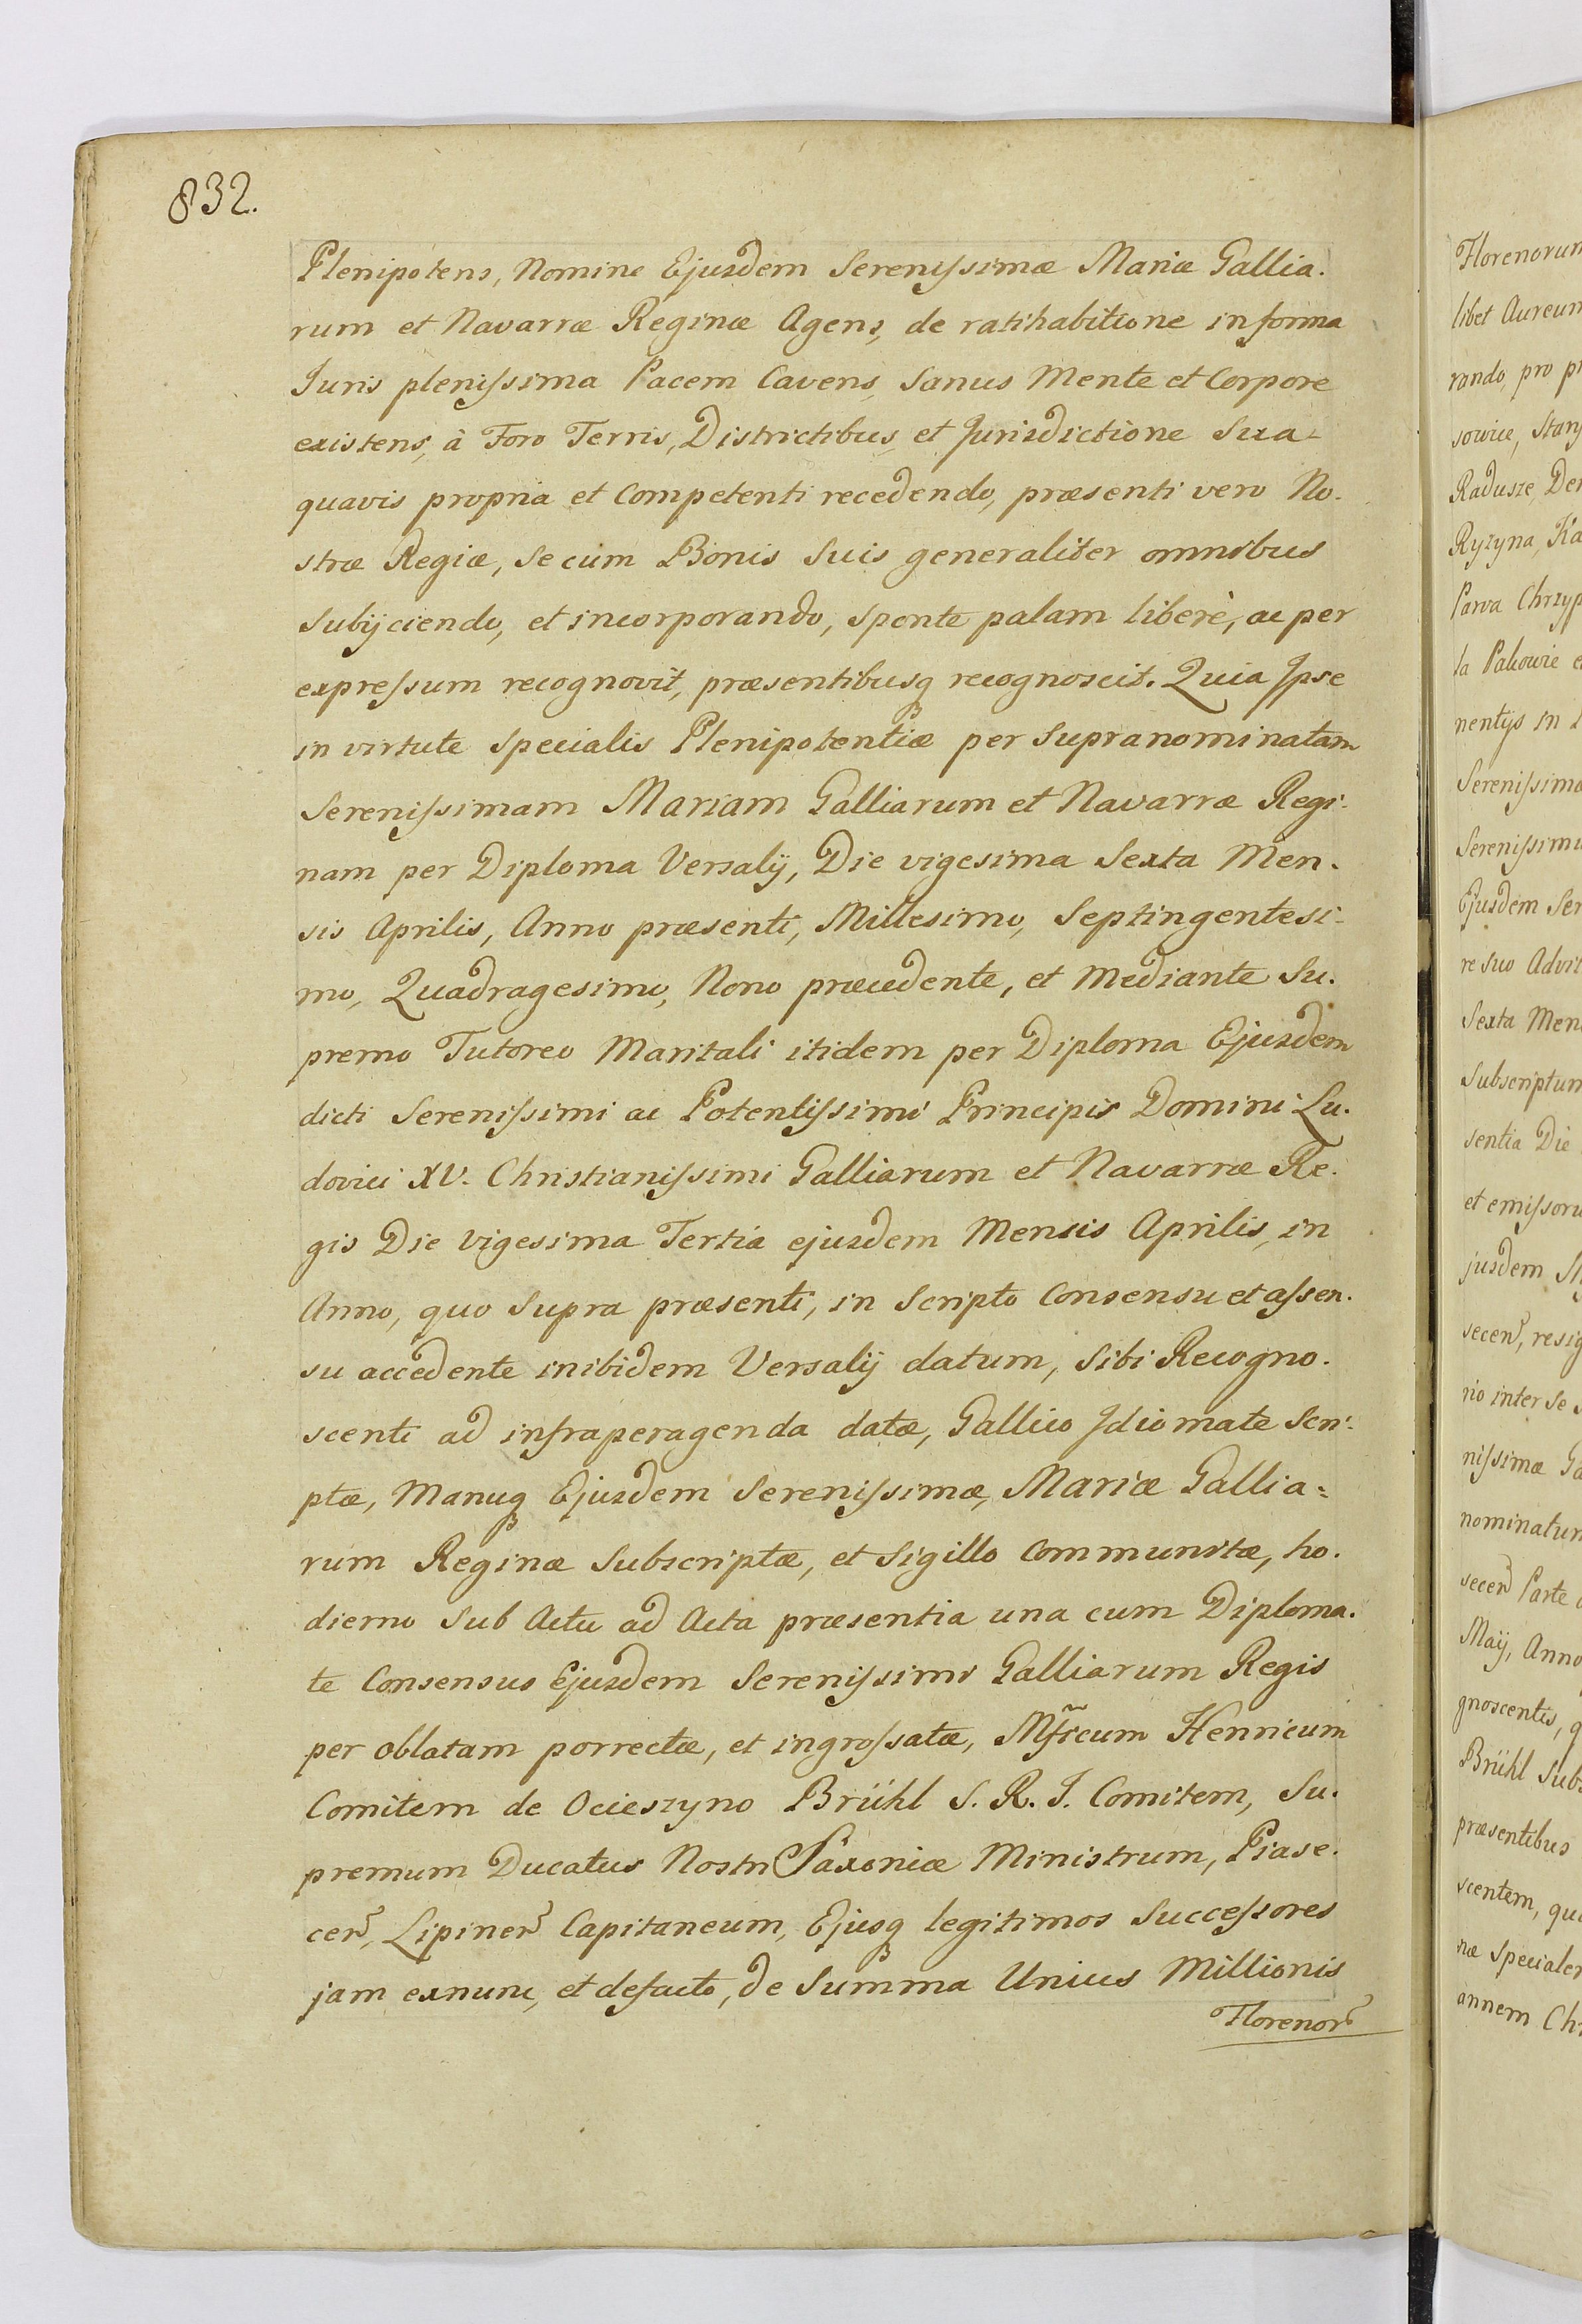 832.
Plenipotens, Nomine Ejusdem Serenissimæ Mariæ Gallia.
rum et Navarræ Reginæ Agens, de ratihabitione in forma
Juris plenissima Pacem Cavens, Sanus Mente et Corpore
existens, à Foro Terris, Districtibus, et Jurisdictione Sua
quavis propria et Competenti recedendo, præsenti vero No.
stræ Regiæ, Se cum Bonis Suis generaliter omnibus
Subijciendo, et incorporando, Sponte palam liberè, ac per
expressum recognovit, præsentibusq recognoscit. Quia Ipse
in virtute Specialis Plenipotentiæ per Supranominatam
Serenissimam Mariam Galliarum et Navarræ Regi.
nam per Diploma Versalij, Die vigesima Sexta Men.
sis Aprilis, Anno præsenti, Millesimo, Septingentesi.
mo, Quadragesimo, Nono præcedente, et Mediante Su.
premo Tutoreo Maritali itidem per Diploma Ejusdem
dicti Serenissimi ac Potentissimi Principis Domini Lu.
dovici XV. Christianissimi Galliarum et Navarræ Re.
gis Die Vigesima Tertia ejusdem Mensis Aprilis, in
Anno, quo Supra præsenti, in Scripto Consensu et assen.
su accedente inibidem Versalij datum, Sibi Recogno.
scenti ad infraperagenda datæ, Gallico Idiomate Scri.
ptæ, Manuq Ejusdem Serenissimæ, Mariæ Gallia:
rum Reginæ Subscriptæ, et Sigillo Communitæ, ho.
dierno Sub Actu ad Acta præsentia una cum Diploma.
te Consensus Ejusdem Serenissimi Galliarum Regis
per oblatam porrectæ, et ingrossatæ, Mficum Henricum
Comitem de Ocieszyno Brühl S. R. J. Comitem, Su.
premum Ducatus Nostri Saxoniæ Ministrum, Piase.
cen, Lipinen Capitaneum, Ejusq legitimos Successores
jam exnunc, et defacto, de Summa Unius Millionis
Florenor
Florenorum
libet Aureum
rando, pro
Radusze,
Ryzyna,
Parva
la Pakowie
nentijs in
Ejusdem
re Suo
Sexta
Subscriptum
sentia Die
jusdem
secen,
rio inter Se
nissimæ
secen Parte
Maij, Anno
gnoscentis,
Brühl
præsentibus
scentem,
næ